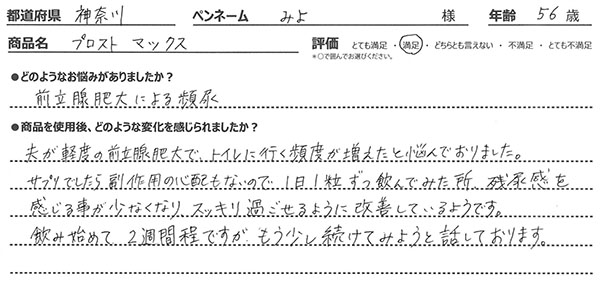 都道府県 神奈川 ペンネーム みよ 様 年齢 56 歳
商品名 プロスト マックス 評価 とても満足 ・ 満足 ・ どちらとも言えない ・ 不満足 ・ とても不満足
*○で囲んでお選びください。
●どのようなお悩みがありましたか?
前立腺肥大による頻尿
●商品を使用後、どのような変化を感じられましたか?
夫が軽度の前立腺肥大で、トイレに行く頻度が増えたと悩んでおりました。
サプリでしたら副作用の心配もないので、1日1粒ずつ飲んでみた所、残尿感を
感じる事が少なくなり、スッキリ過ごせるように改善しているようです。
飲み始めて、2週間程ですが、もう少し続けてみようと話しております。